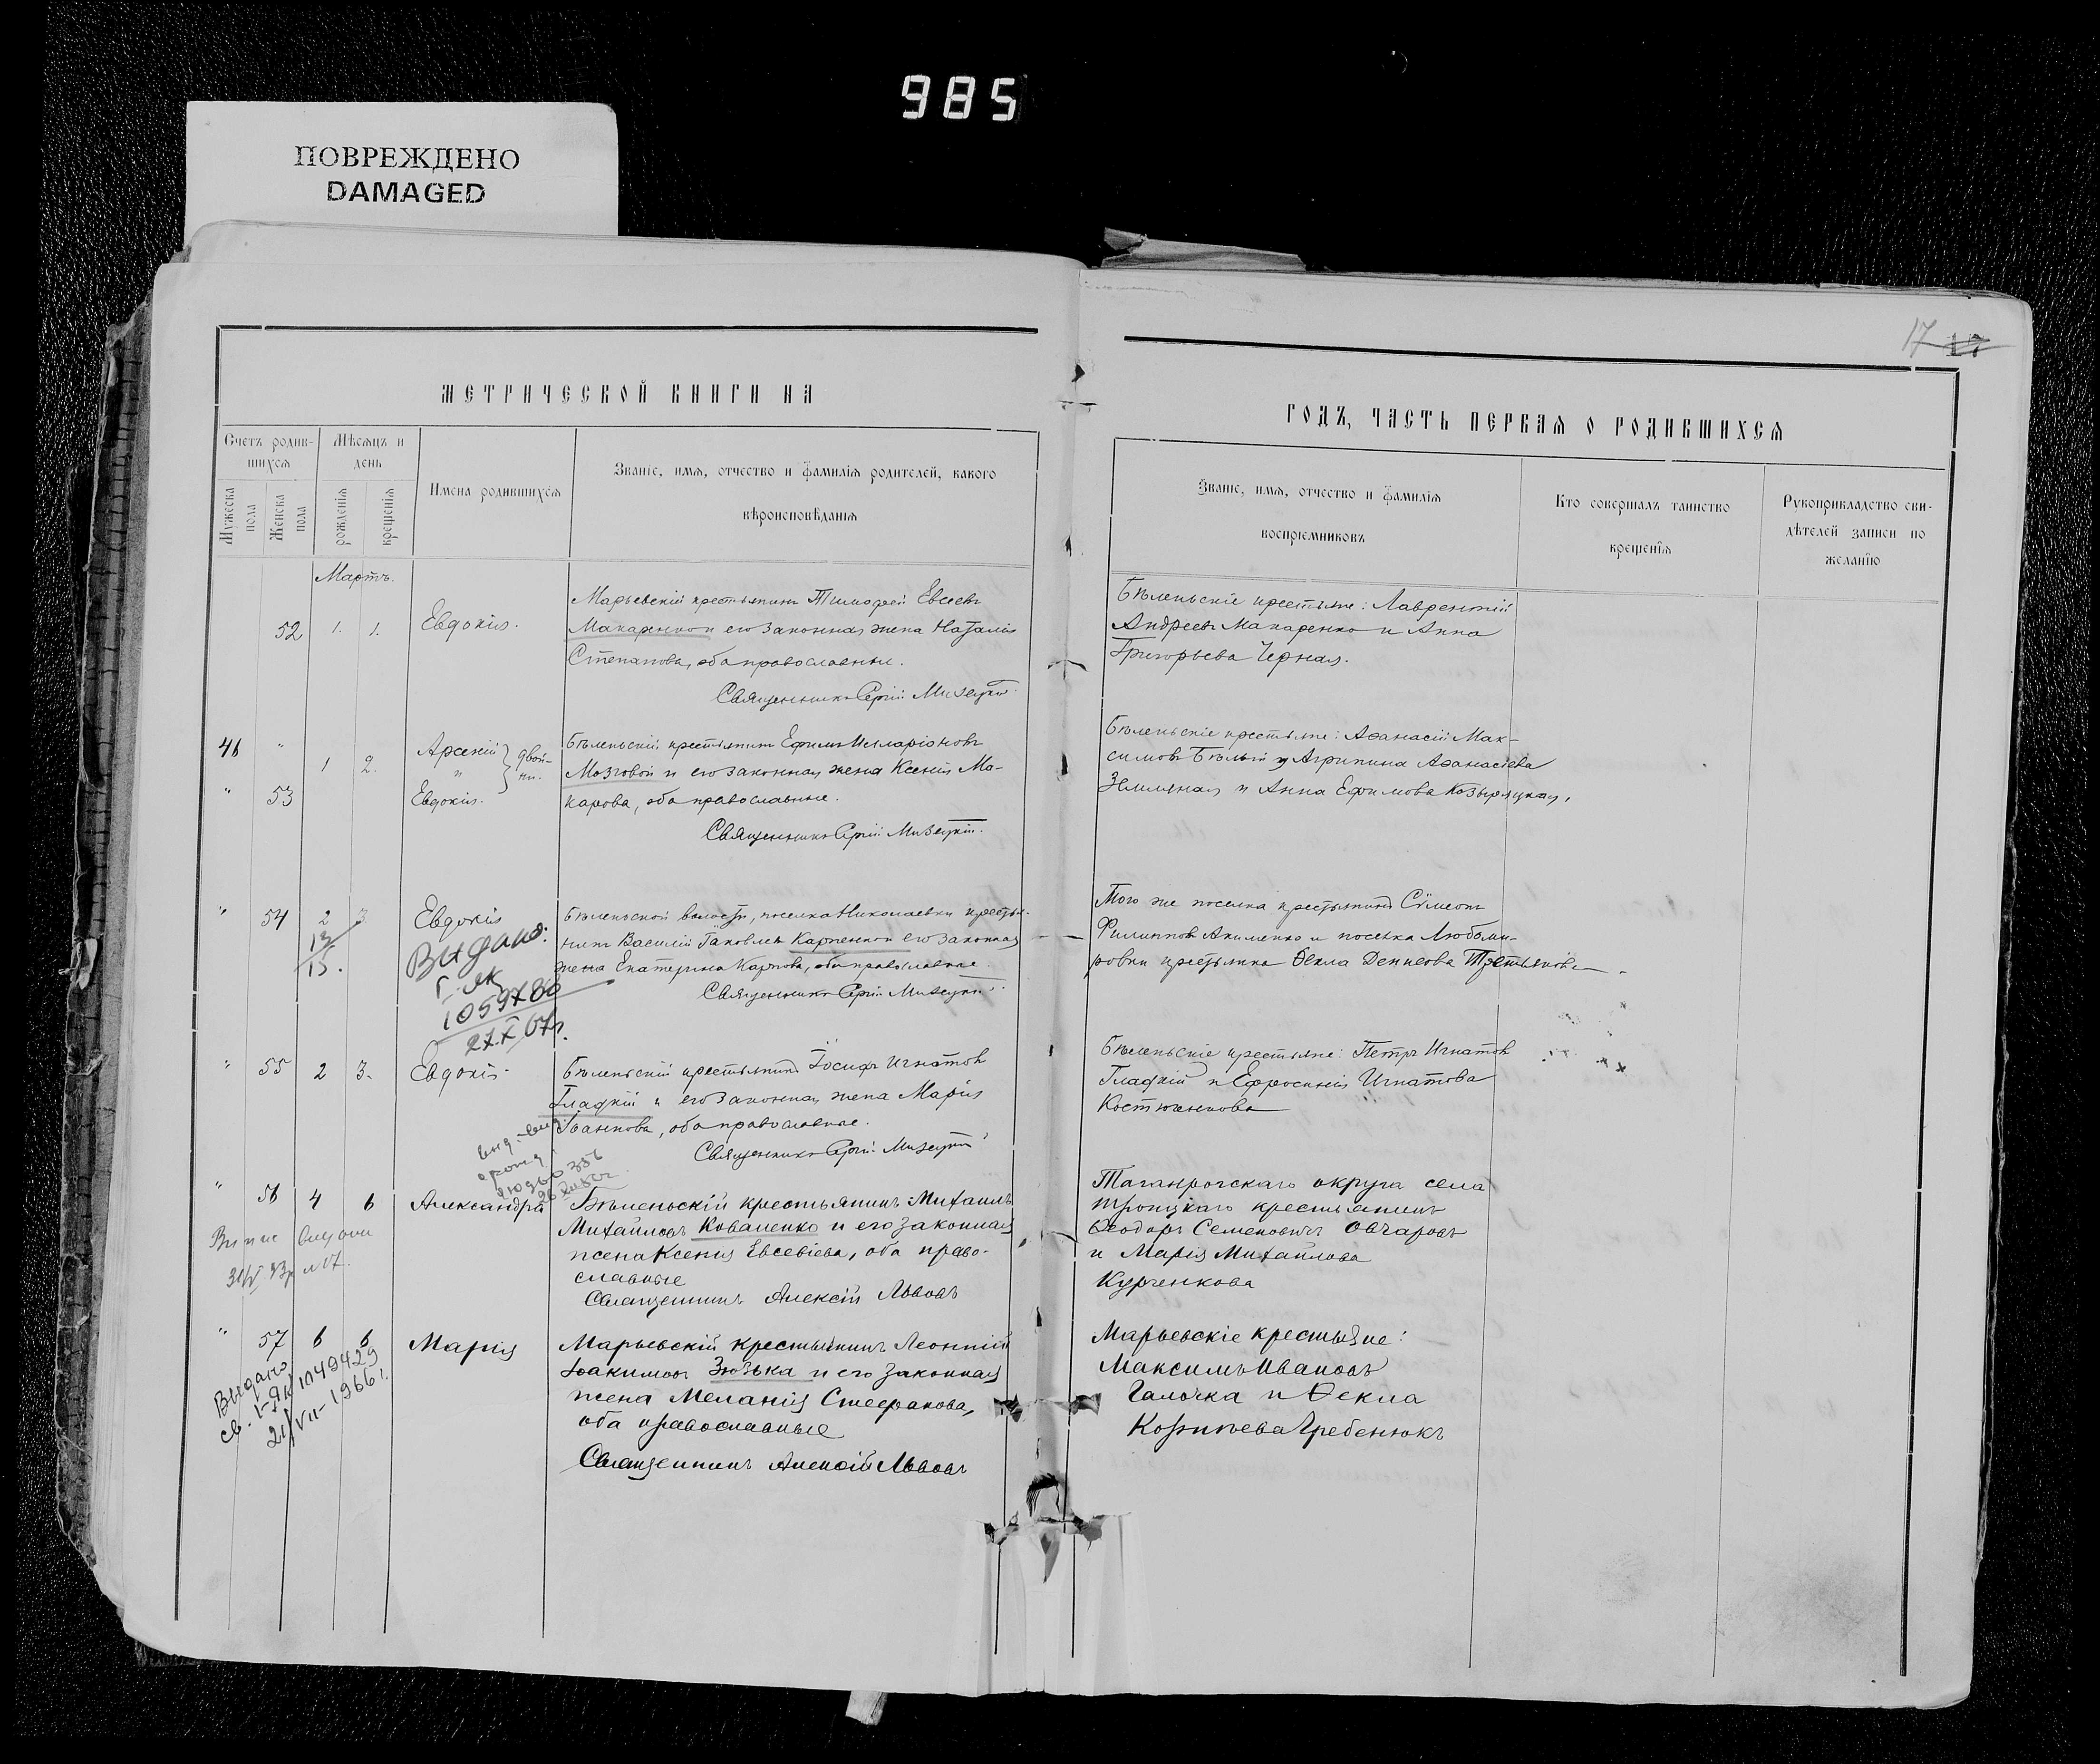 985
ПОВРЕЖДЕНО
DAMAGED
17 17
МЕТРИЧЕСКОЙ КНИГИ НА
ГОДЪ, ЧАСТЬ ПЕРВАЯ О РОДИВШИХСЯ
Счетъ родив-
шихся
Мужеска
пола
Женска
пола
Мѣсяцъ и
день
рожденія
крещенія
Имена родившихся
Званіе, имя, отчество и фамилія родителей, какого
вѣроисповѣданія
Званіе, имя, отчество и фамилія
воспріемниковъ
Кто совершалъ таинство
крещенія
Рукоприкладство сви-
дѣтелей записи по
желанію
Мартъ.
52 1. 1. Евдокія.
Марьевскій крестьянинъ Тимофей Евсеевъ
Макаренко и его законная жена Наталія
Степанова, оба православные.
Священникъ Сергій Мизецкій
Бѣленьскіе крестьяне: Лаврентій
Андреевъ Макаренко и Анна
Григорьева Черная.
46 " 1 2. Арсеній
" 53 и Евдокія. } двой-
ни.
Бѣленьскій крестьянинъ Ефимъ Илларіоновъ
Мозговой и его законная жена Ксенія Ма-
карова, оба православные.
Священникъ Сергій Мизецкій.
Бѣленьскіе крестьяне: Афанасій Мак-
симовъ Бѣлый и Агрипина Афанасіева
и Анна Ефимова
" 54 2 3 Евдокія
13
15.
Выдано:
1059780
27.X 67г.
Бѣленьской волости, поселка Николаевки крестья-
нинъ Василій Іаковлевъ Карпенко и его законная
жена Екатерина Карпова, оба православные.
Священникъ Сергій Мизецкій
Того же поселка крестьянинъ Сѵмеонъ
Филипповъ Акименко и поселка Любоми-
ровки крестьянка Ѳекла Денисова
" 55 2 3. Евдокія.
Бѣленьскій крестьянинъ Іосифъ Игнатов
Гладкій и его законная жена Марія
Іоаннова, оба православные.
Священникъ Сергій Мизецкій
Бѣленьскіе крестьяне: Петръ Игнатов
Гладкій и Ефросинія Игнатова
Костюченкова
" 56 4 6 Александра
Бѣленьскій крестьянинъ Михаилъ
Михайловъ Коваленко и его законная
жена Ксенія Евсевіева, оба право-
славные
Священникъ Алексій Львовъ
Таганрогскаго округа села
Троицкаго крестьянинъ
Ѳеодоръ Семеновичъ Овчаровъ
и Марія Михайлова
Курченкова
" 57 6 6 Марія
Выдано
св. I-ЯК 1049429
21/VII-1966г.
Марьевскій крестьянинъ Леонтій
Іоакимовъ Зюзька и его законная
жена Меланія Стефанова,
оба православные
Священникъ Алексій Львовъ
Марьевскіе крестьяне:
Максимъ Ивановъ
Галочка и Ѳекла
Гребенюкъ